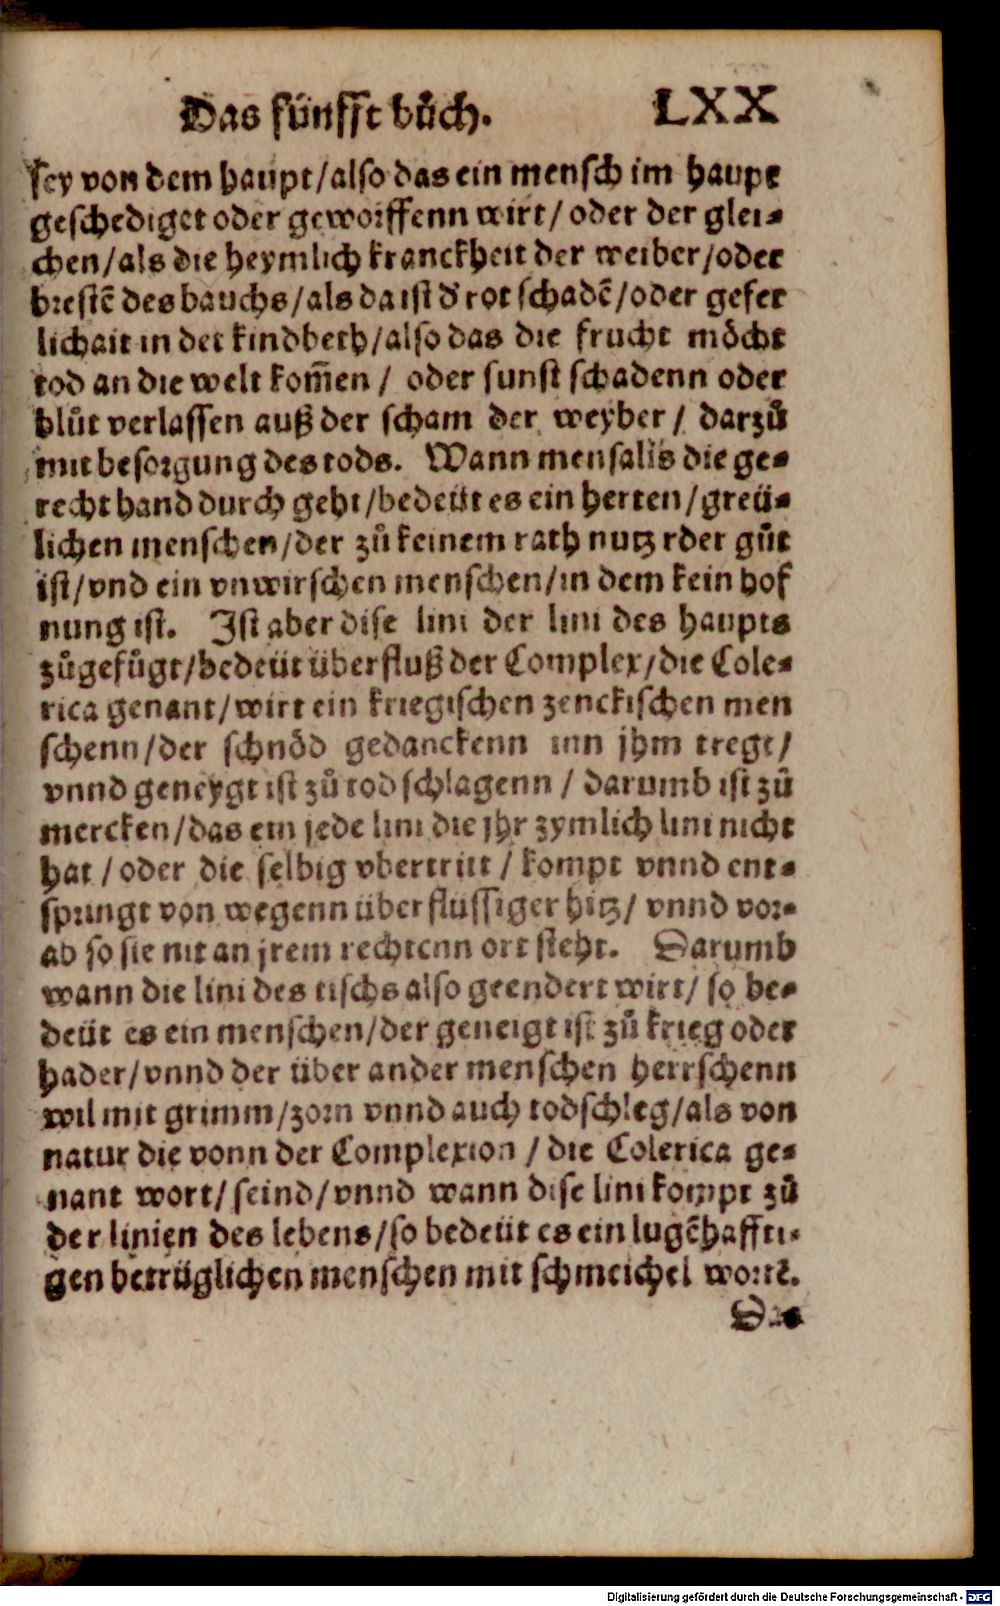 Das fünfft bůch. LXX
sey von dem haupt/also das ein mensch im haupt
geschediget oder geworffenn wirt/ oder der glei⸗
chen/als die heymlich kranckheit der weiber/oder
brestē des bauchs/als da ist d' rot schadē/oder gefer
lichait in der kindbeth/also das die frucht möcht
tod an die welt kom̄en / oder sunst schadenn oder
blůt verlassen auß der scham der weyber / darzů
mit besorgung des tods. Wann mensalis die ge⸗
recht hand durch geht/bedeüt es ein herten/greü⸗
lichen menschen/der zů keinem rath nutz rder gůt
ist/vnd ein vnwirschen menschen/in dem kein hof
nung ist. Ist aber dise lini der lini des haupts
zůgefůgt/bedeüt überfluß der Complex/die Cole⸗
rica genant/wirt ein kriegischen zenckischen men
schenn/der schnöd gedanckenn inn jhm tregt/
vnnd geneygt ist zů tod schlagenn / darumb ist zů
mercken/das ein jede lini die jhr zymlich lini nicht
hat / oder die selbig vbertritt / kompt vnnd ent⸗
springt von wegenn überflüssiger hitz/ vnnd vor⸗
ab so sie nit an jrem rechtenn ort steht. Darumb
wann die lini des tischs also geendert wirt/ so be⸗
deüt es ein menschen/der geneigt ist zů krieg oder
hader/vnnd der über ander menschen herrschenn
wil mit grimm/zorn vnnd auch todschleg/als von
natur die vonn der Complexion / die Colerica ge⸗
nant wort/seind/vnnd wann dise lini kompt zů
der linien des lebens/so bedeüt es ein lugēhaffti⸗
gen betrüglichen menschen mit schmeichel wortē.
Das
Digitalisierung gefördert durch die Deutsche Forschungsgemeinschaft - DFG